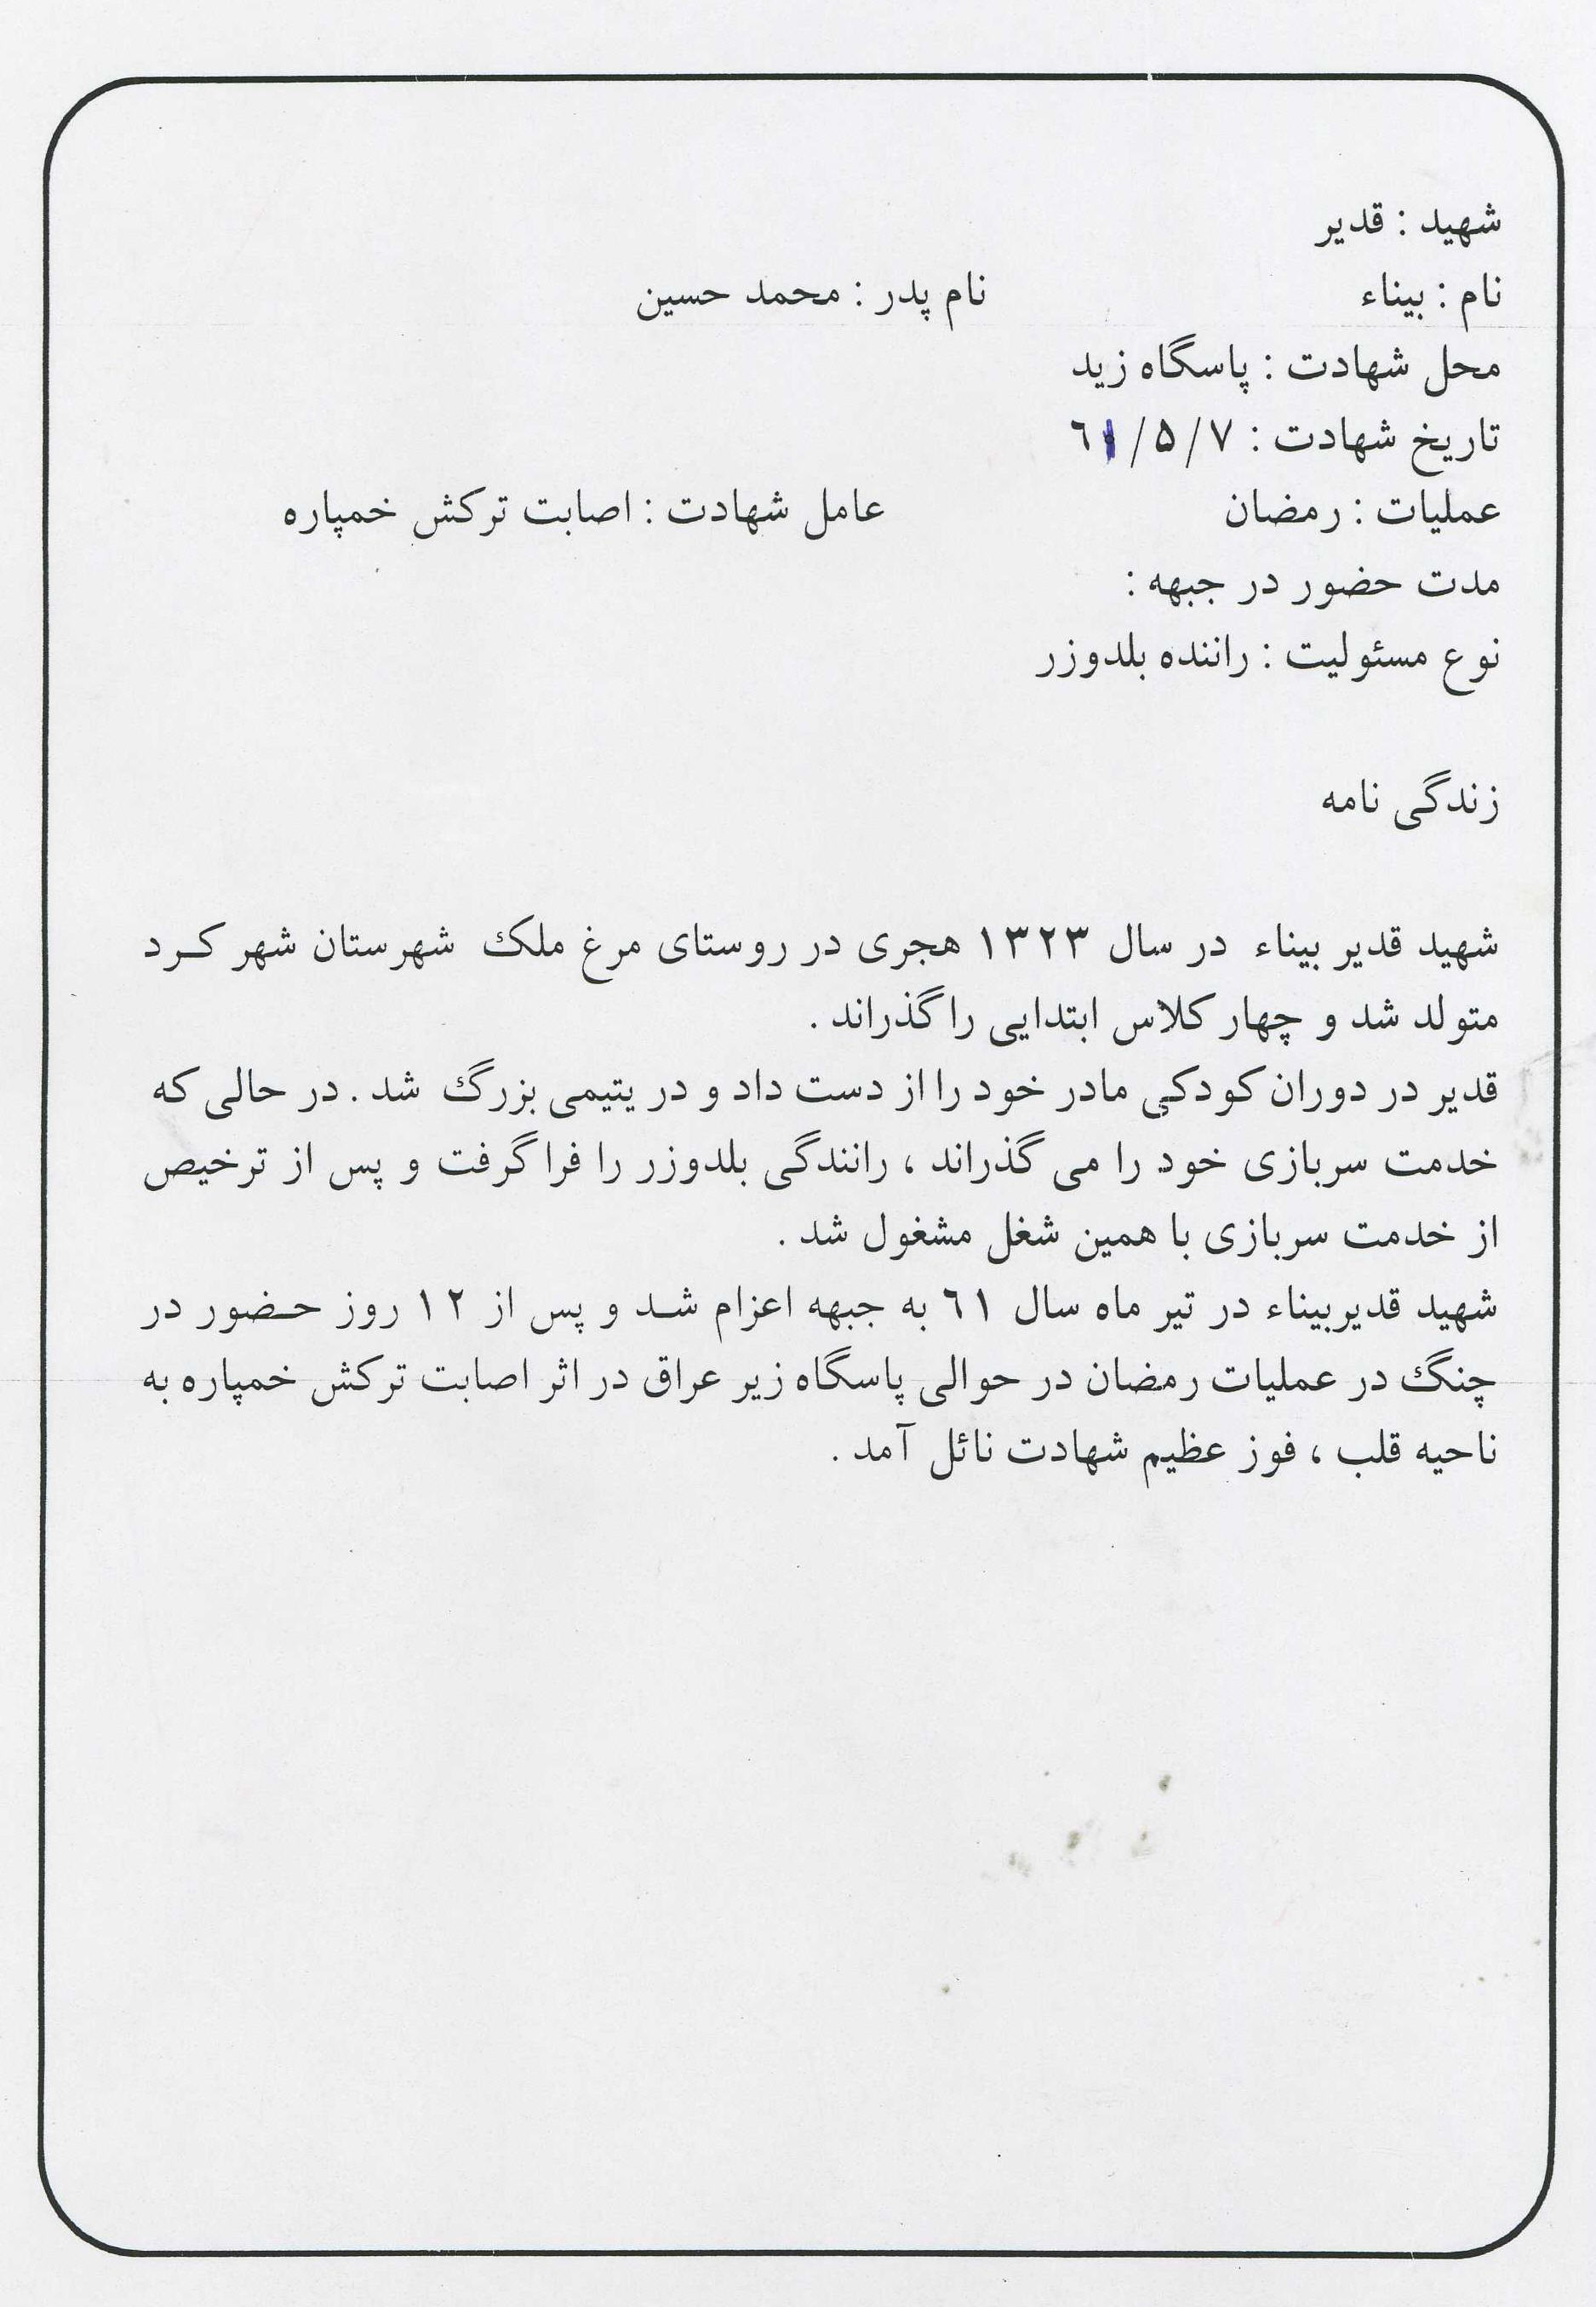 شهید : قدیر
نام : بیناء نام پدر : محمد حسین
محل شهادت : پاسگاه زید
تاریخ شهادت : ۶۱/۵/۷
عملیات : رمضان عامل شهادت : اصابت ترکش خمپاره
مدت حضور در جبهه :
نوع مسئولیت : راننده بلدوزر
زندگی نامه
شهید قدیر بیناء در سال ۱۳۲۳ هجری در روستای مرغ ملک شهرستان شهر کـرد
متولد شد و چهار کلاس ابتدایی را گذراند .
قدیر در دوران کودکی مادر خود را از دست داد و در یتیمی بزرگ شد . در حالی که
خدمت سربازی خود را می گذراند ، رانندگی بلدوزر را فرا گرفت و پس از ترخیص
از خدمت سربازی با همین شغل مشغول شد .
شهید قدیربیناء در تیر ماه سال ۶۱ به جبهه اعزام شـد و پس از ۱۲ روز حـضور در
چنگ در عملیات رمضان در حوالی پاسگاه زیر عراق در اثر اصابت ترکش خمپاره به
ناحیه قلب ، فوز عظیم شهادت نائل آمد .